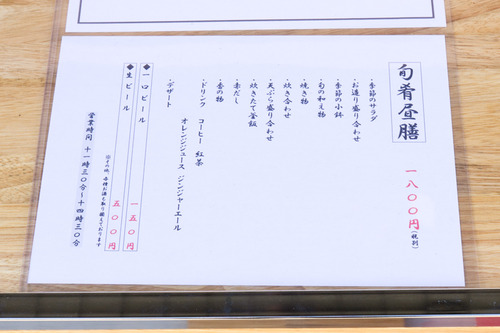 旬肴昼膳
一八〇〇円(税別)
・季節のサラダ
・お造り盛り合わせ
・季節の小鉢
・旬の和え物
・焼き物
・炊き合わせ
・天ぷら盛り合わせ
・炊きたて釜飯
・赤だし
・香の物
・ドリンク コーヒー 紅茶
オレンジジュース ジンジャーエール
・デザート
◆一口ビール 一五〇円
◆生ビール 五〇〇円
※その他、各種お酒も取り揃えております
営業時間 十一時三〇分~十四時三〇分